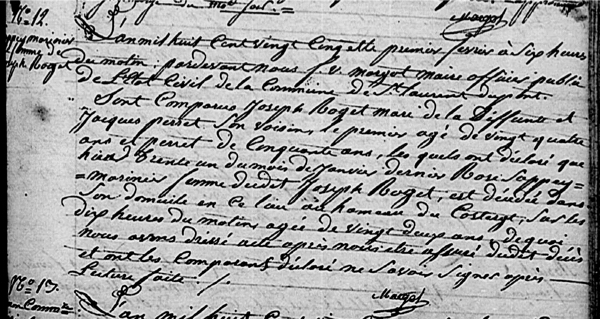 N.º 12.
Margot
L'an mil huit Cent vingt Cinq et le premier fevrier à Six heures
femme de
joseph Roget
du matin; pardevant nous f. v. margot maire officier public
de l'Etat Civil de la Commune de St Laurent dupont.
Sont Comparus Joseph Roget mari de la Deffunte et
Jacques perret Son voisin, le premier agé de vingt quatre
ans et perret de Cinquante ans, les quels ont déclaré que
hier Trente un du mois de Janvier dernier Rose Sappey-
=marinier femme dudit Joseph Roget, est décédée dans
Son domicile en ce lieu au hameau du Costergt, Sur les
dix heures du matin agée de vingt deux ans de quoi
nous avons dressé acte après nous être assuré dudit décès
et ont les Comparants déclaré ne Savoir Signer après
Lecture faite ./.
Margot
N.º 13.
L'an mil huit Cent